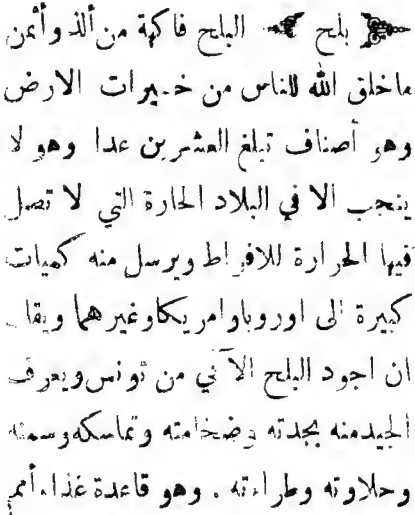 بلح البلح فاكهة من ألذ وأثمن
ماخلق الله للناس من خيرات الارض
وهو أصناف تبلغ العشرين عدا وهو لا
ينجب الا في البلاد الحارة التي لا تصل
فيها الحرارة للافراط ويرسل منه كميات
كبيرة الى اوروباوامريكاوغيرهما ويقال
ان اجود البلح الآتي من تونس ويعرف
الجيدمنه بجدته وضخامته وتماسكه وسمنه
وحلاوته وطراءته . وهو قاعدة غذاء أمم